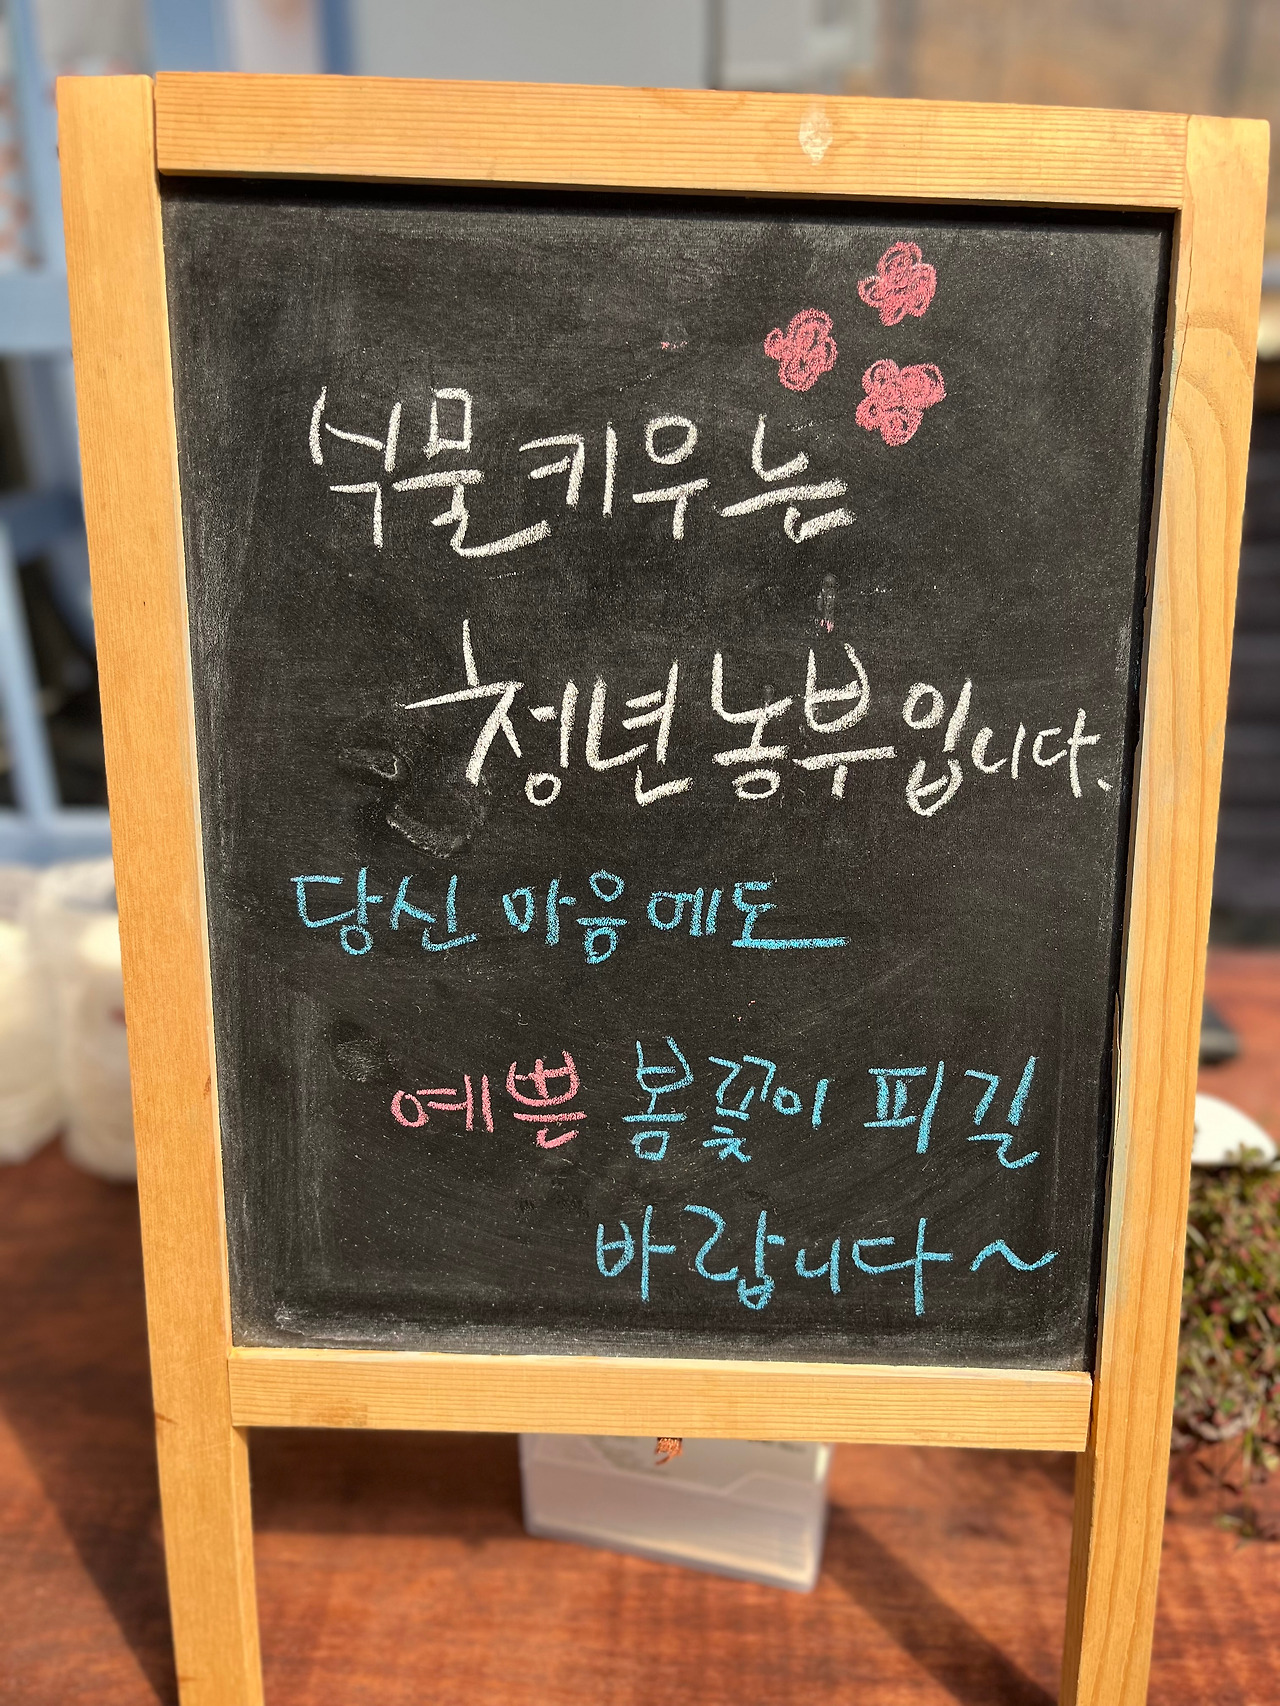 식물 키우는
청년농부입니다.
당신 마음에도
예쁜 봄꽃이 피길
바랍니다~